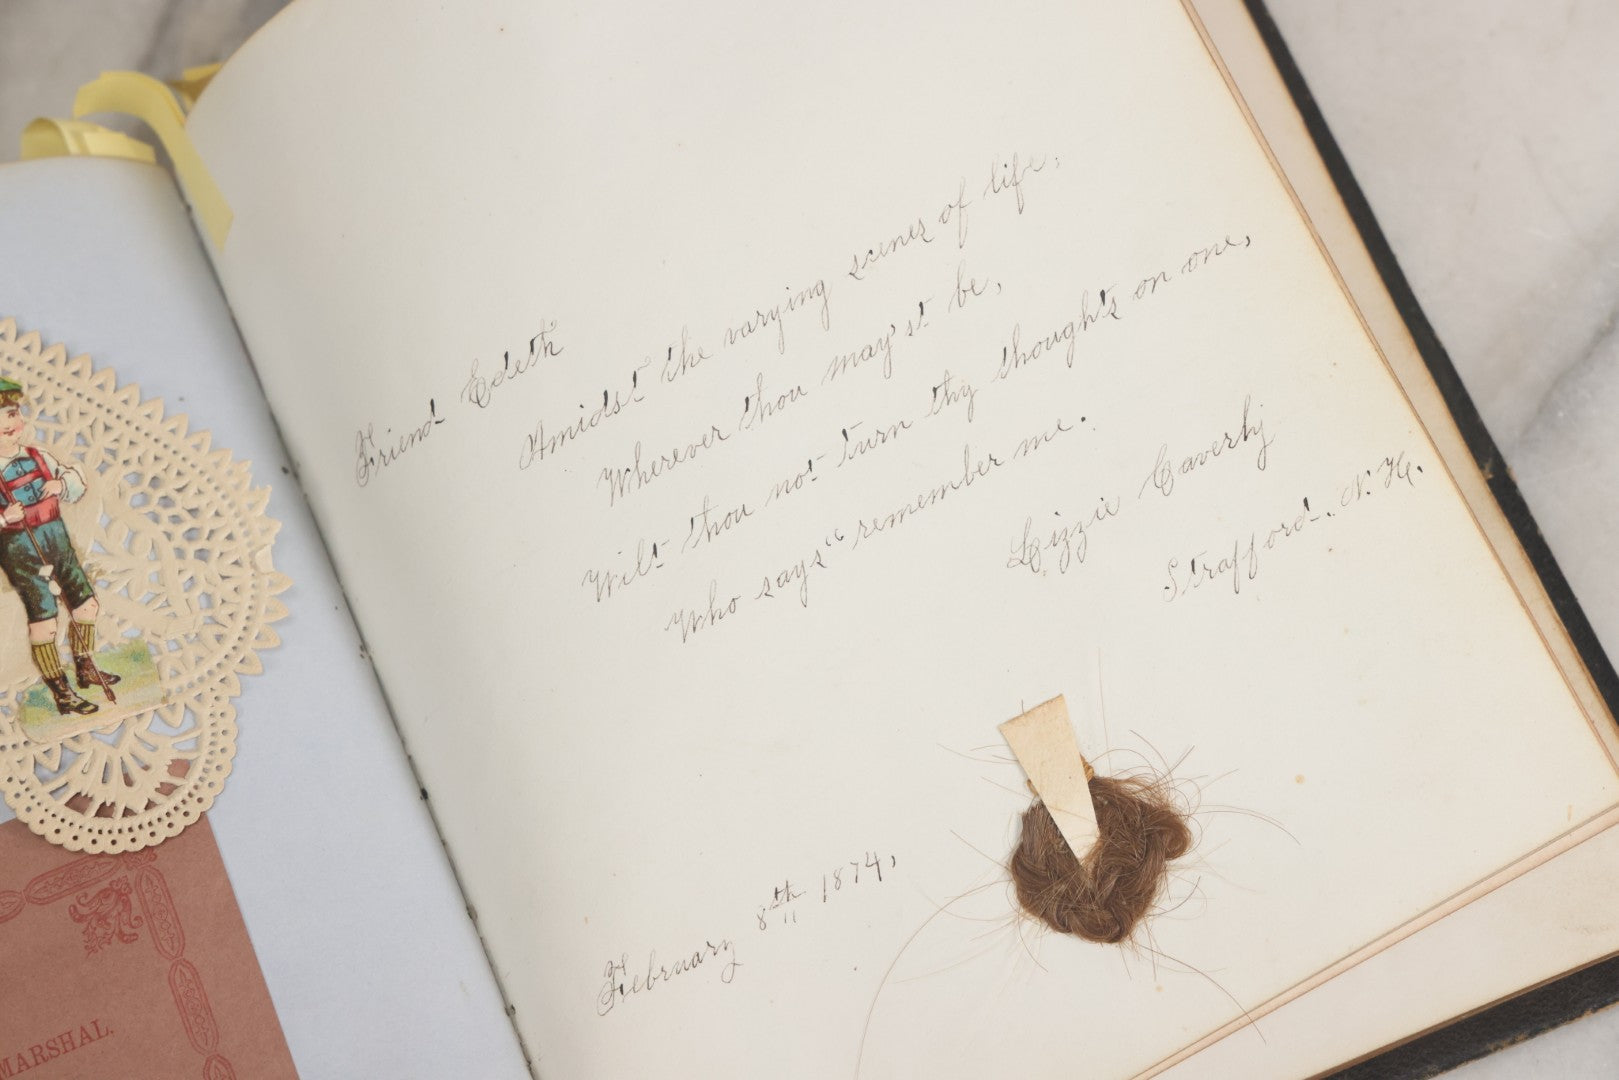 Friend Edeth
Amidst the varying scenes of life,
Wherever thou may'st be,
Wilt thou not turn thy thoughts on one,
Who says "remember me.
Lizzie Caverly
Strafford. N. H.
February 8th 1874,
MARSHAL.